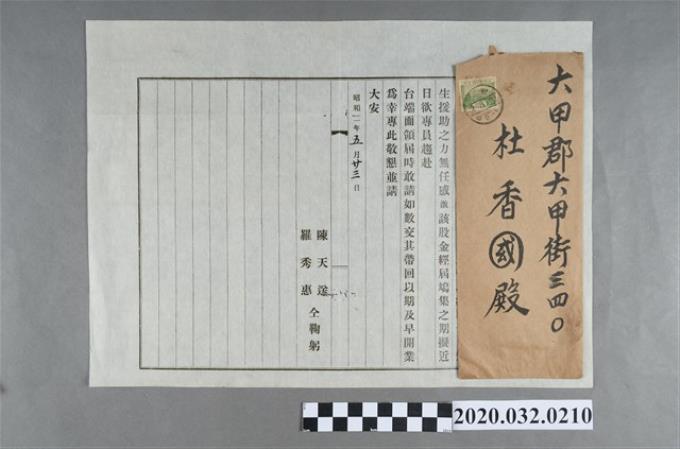 大甲郡大甲街三四〇
杜香國殿
生援助之力無任感激該股金經屆鳩集之期擬近
日欲專員趨赴
台端面領屆時敢請如數交其帶回以期及早開業
為幸專此敬懇並請
大安
昭和 年五月廿三日
陳天送
羅秀惠
仝鞠躬
2020.032.0210